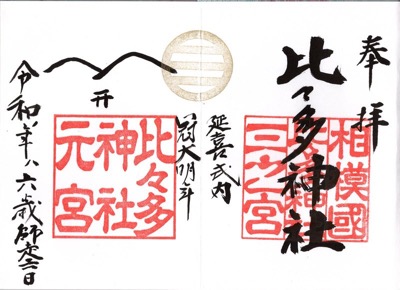 奉拝
比々多神社
相模國
三之宮
延喜式内
冠大明神
比々多
神社
元宮
令和
六歳師走
日